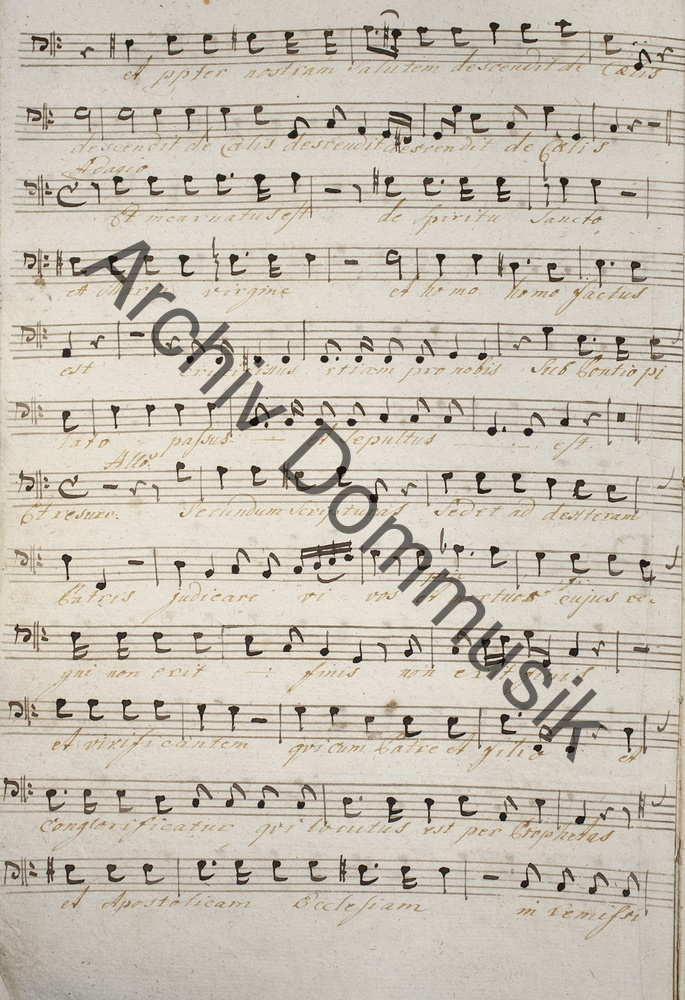 et ppter nostram salutem descendit de Cælis
descendit de Cælis descendit descendit de Cælis
Adagio
Et incarnatus est de Spiritu Sancto
et Maria virgine et homo homo factus
est etiam pro nobis Sub Pontio pi
lato passus et sepultus est
Allo.
Et resurr. Secundum Scripturas Sedet ad dexteram
Patris judicare vi vos et mortuos cujus reg
qui non erit finis non erit finis
et vivificantem qui cum Patre et filio et
conglorificatur qui locutus est per Prophetas
et Apostolicam Ecclesiam in remissi
Archiv Dommusik